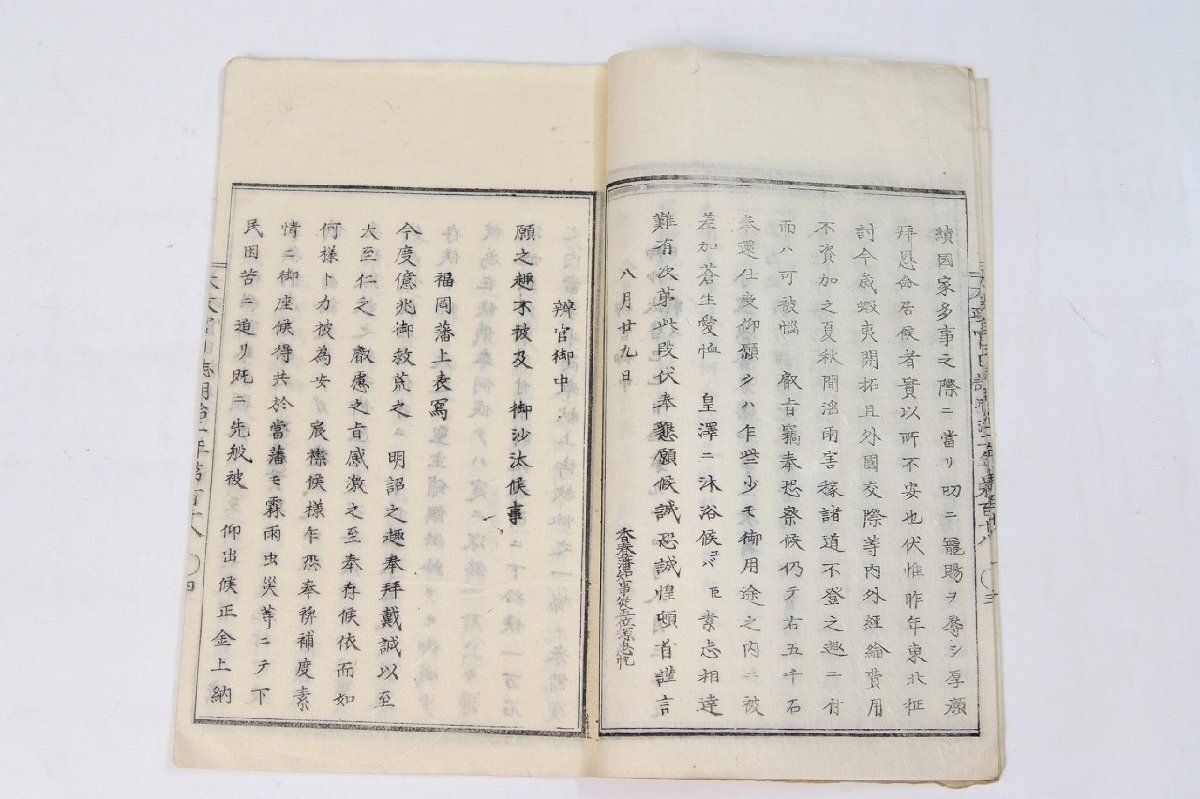 績國家多事之際ニ當リ叨ニ寵賜ヲ辱シ厚顔
拜恩命居候者實以所不安也伏惟昨年東北征
討今歳蝦夷開拓且外國交際等内外経給費用
不資加之夏秋間滛雨害稼諸道不登之趣ニ付
而ハ可被惱 叡旨竊奉恐察候仍テ右五千石
奉還仕度仰願シハ乍些少モ御用途之内ニ被
差加蒼生愛恤 皇澤ニ沐浴候ヘバ臣素志相達
難有次第此段伏奉懇願候誠恐誠惶頓首謹言
八月廿九日
香春藩知事従五位源忠忱
辨官御中
願之趣不被及 御沙汰候事
福岡藩上表寫
今度億兆御救荒之 明詔之趣奉拜戴誠以至
大至仁之 叡慮之旨感激之至奉存候依而如
何様トカ被為安 宸襟候様乍恐奉裨補度素
情ニ御座候得共於當藩モ霖雨虫災等ニテ下
民困苦ニ迫リ既ニ先般被 仰出候正金上納